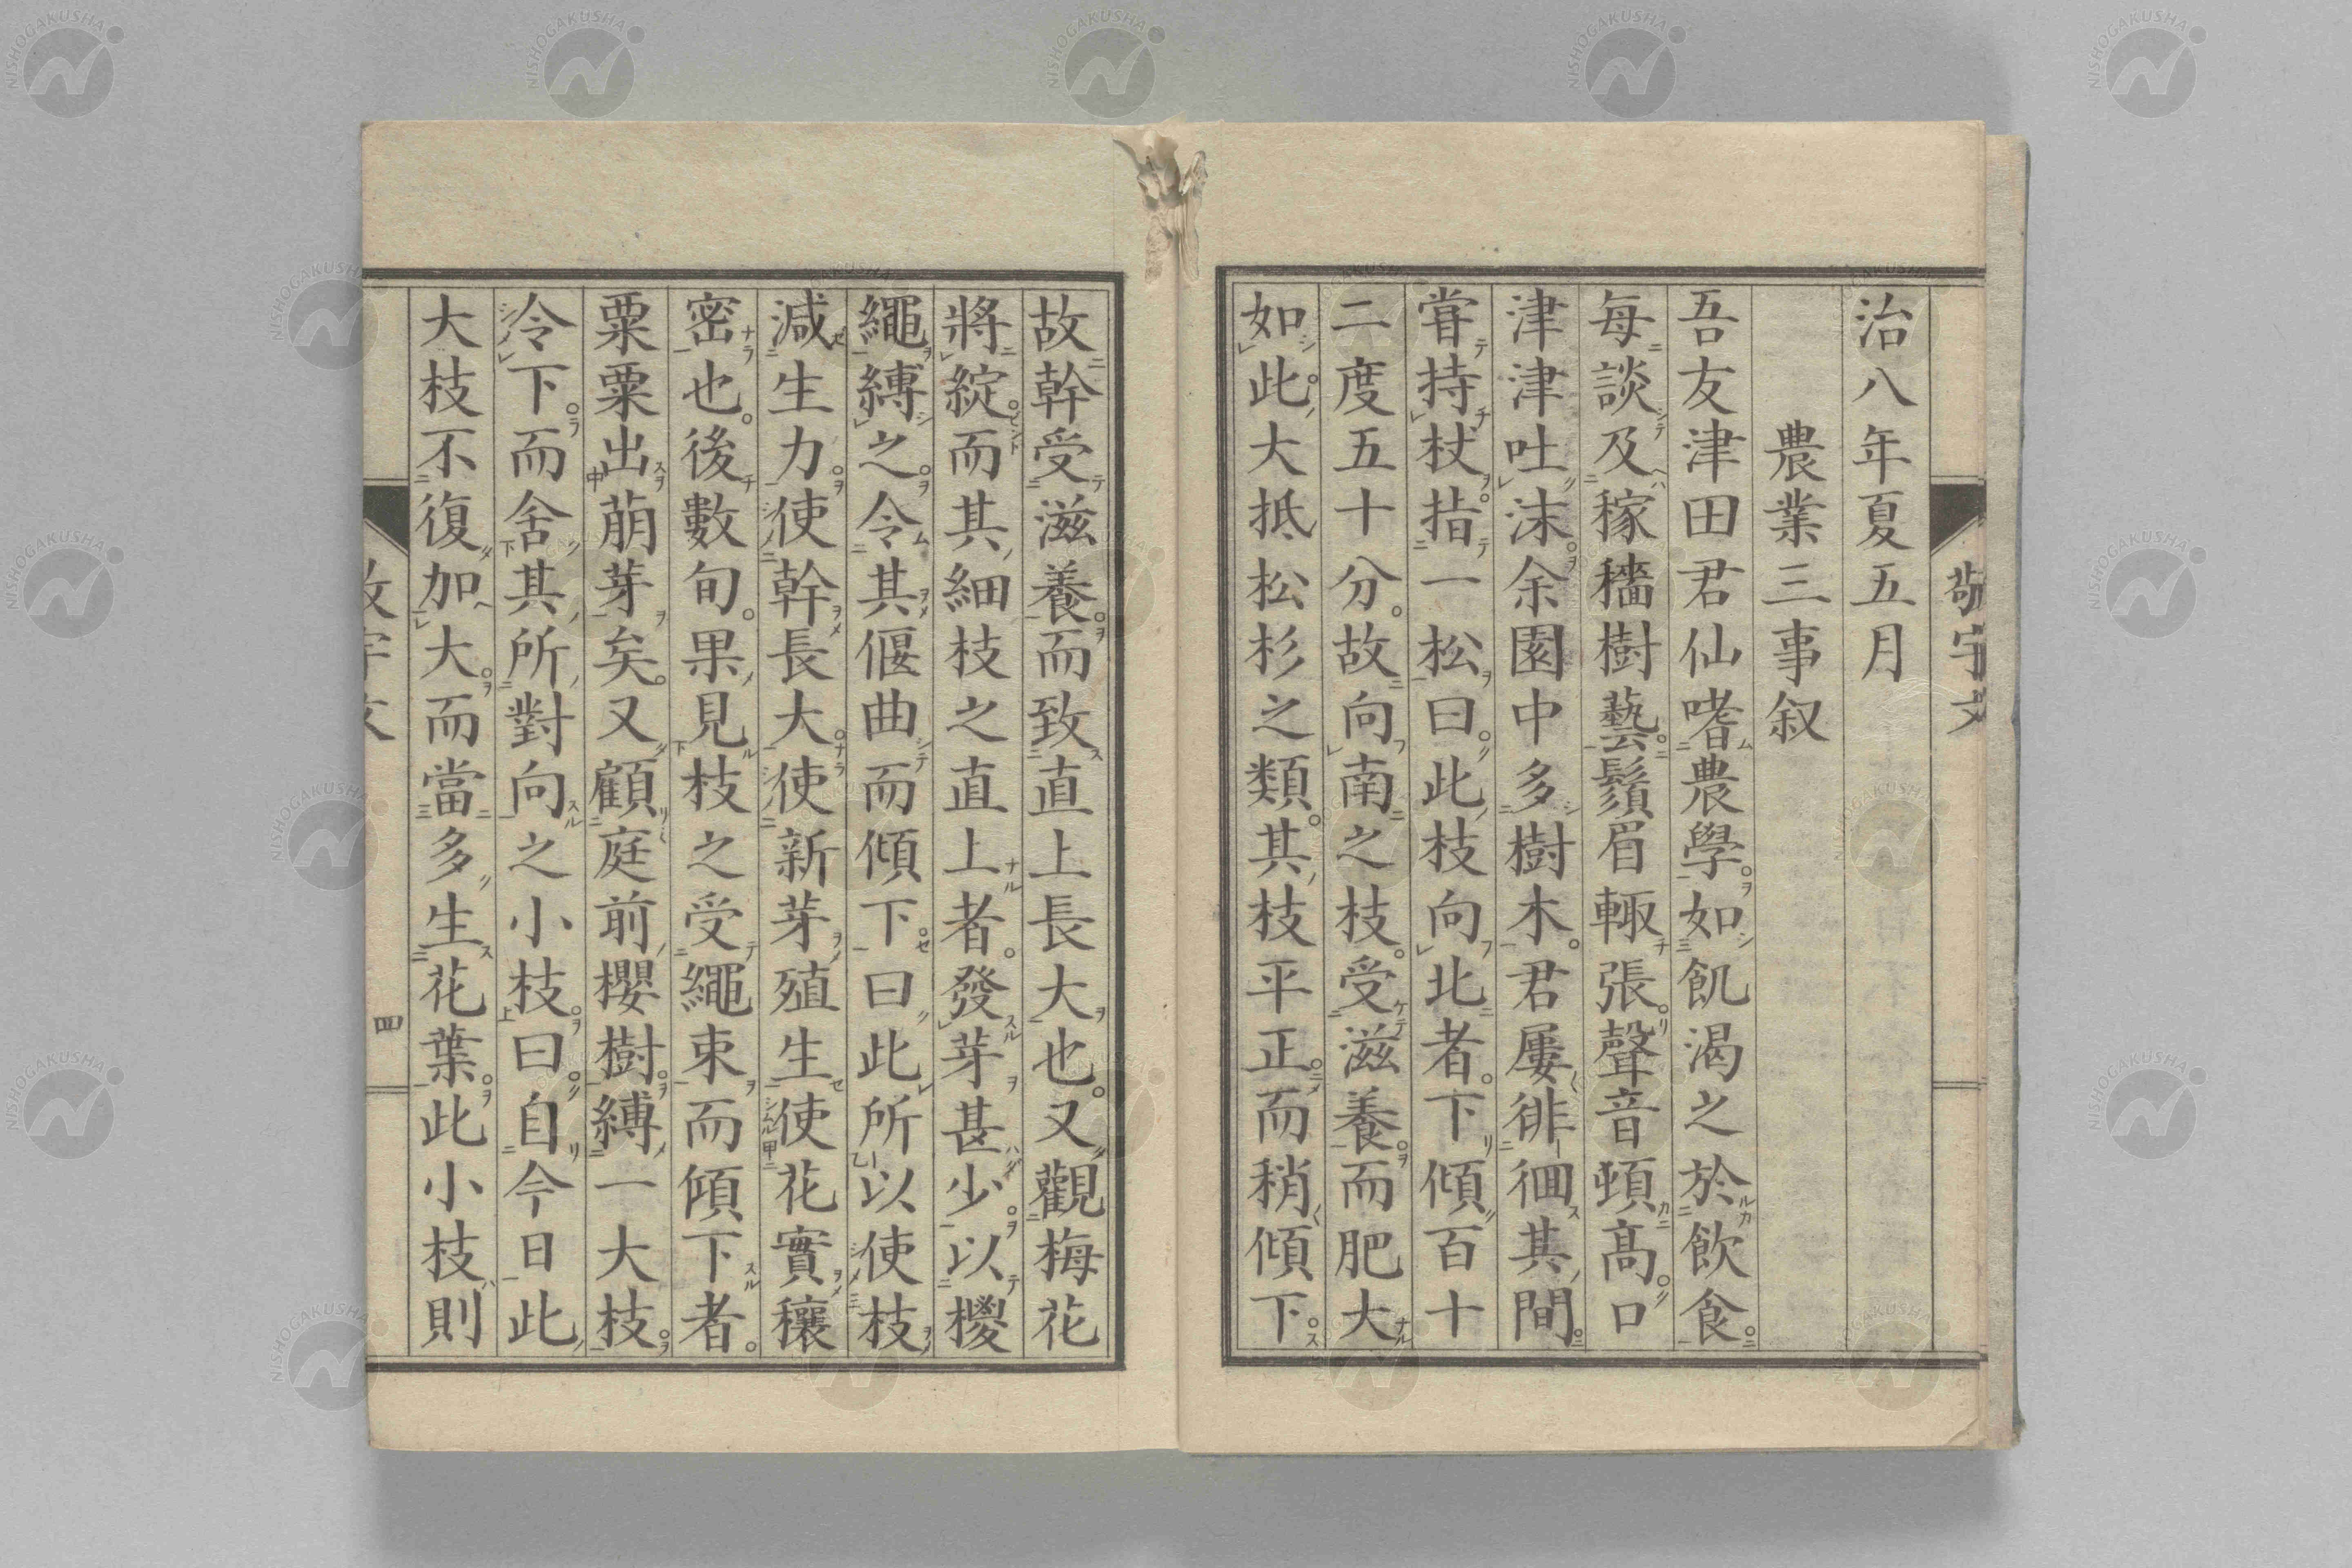 治八年夏五月
農業三事叙
吾友津田君仙嗜農學如飢渴之於飲食
每談及稼穡樹藝鬚眉輙張聲音頓高口
津津吐沫余園中多樹木君屢徘徊其間
嘗持杖指一松曰此枝向北者下傾百十
二度五十分故向南之枝受滋養而肥大
如此大抵松杉之類其枝平正而稍傾下
故幹受滋養而致直上長大也又觀梅花
將綻而其細枝之直上者發芽甚少以椶
繩縛之令其偃曲而傾下曰此所以使枝
減生力使幹長大使新芽殖生使花實穰
密也後數旬果見枝之受繩束而傾下者
粟粟出萠芽矣又顧庭前櫻樹縛一大枝
令下而舍其所對向之小枝曰自今日此
大枝不復加大而當多生花葉此小枝則
敬宇文
四
NISHOGAKUSHA